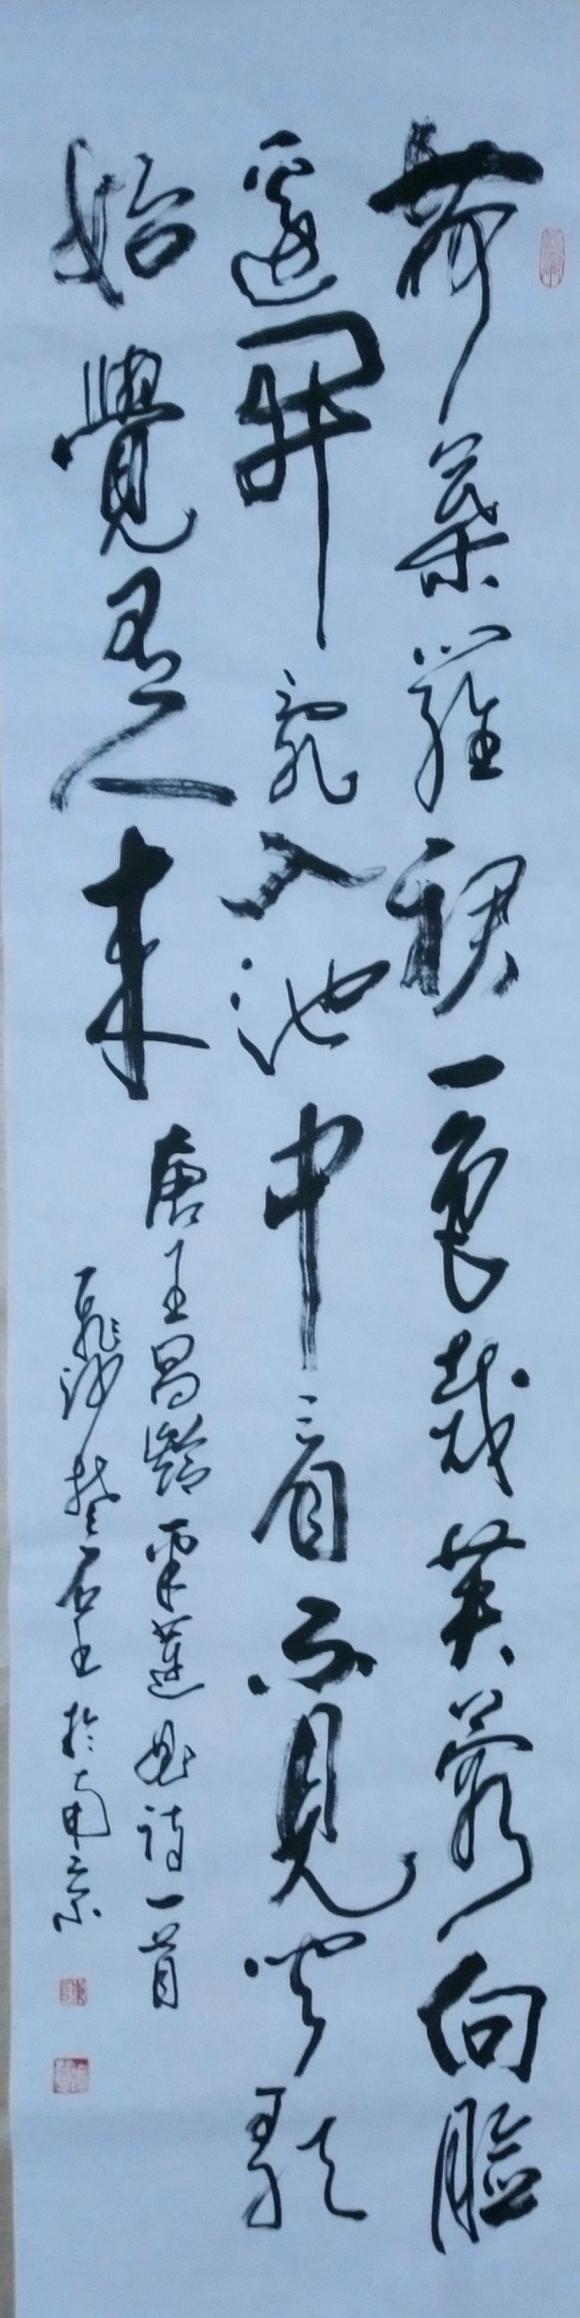 荷葉羅裙一色裁芙蓉向臉
邊開亂入池中看不見聞歌
始覺有人來
唐王昌齡采蓮曲詩一首
於南京